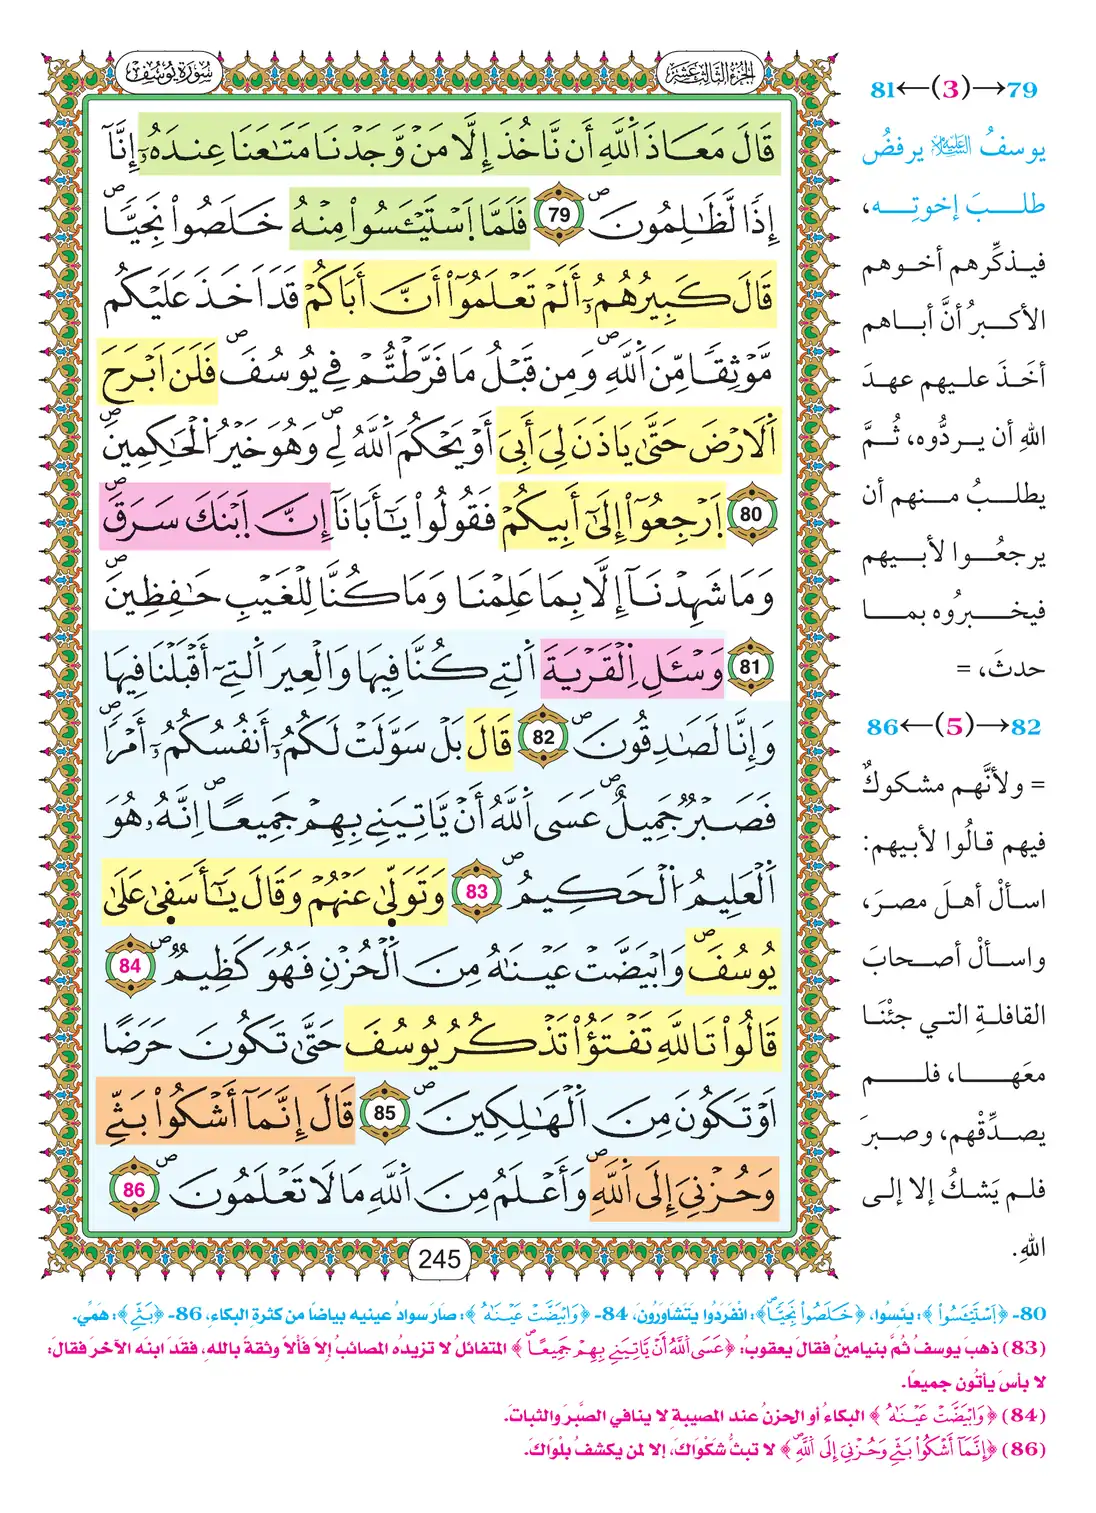 سُورَةُ يُوسُفَ
الجزء الثالث عشر
قَالَ مَعَاذَ اَ۬للَّهِ أَن نَّاخُذَ إِلَّا مَنْ وَّجَدْنَا مَتَٰعَنَا عِندَهُۥٓ إِنَّآ
إِذاٗ لَّظَٰلِمُونَۖ 79 فَلَمَّا اَ۪سْتَيْـَٔسُواْ مِنْهُ خَلَصُواْ نَجِيّاٗۖ
قَالَ كَبِيرُهُمُۥٓ أَلَمْ تَعْلَمُوٓاْ أَنَّ أَبَاكُمْ قَدَ اَخَذَ عَلَيْكُم
مَّوْثِقاٗ مِّنَ اَ۬للَّهِۖ وَمِن قَبْلُ مَا فَرَّطتُّمْ فِے يُوسُفَۖ فَلَنَ اَبْرَحَ
اَ۬لَارْضَ حَتَّىٰ يَاذَنَ لِيَ أَبِيَ أَوْ يَحْكُمَ اَ۬للَّهُ لِےۖ وَهُوَ خَيْرُ اُ۬لْحَٰكِمِينَۖ
80 اَ۪رْجِعُوٓاْ إِلَىٰٓ أَبِيكُمْ فَقُولُواْ يَٰٓأَبَانَآ إِنَّ اَ۪بْنَكَ سَرَقَۖ
وَمَا شَهِدْنَآ إِلَّا بِمَا عَلِمْنَا وَمَا كُنَّا لِلْغَيْبِ حَٰفِظِينَۖ
81 وَسْـَٔلِ اِ۬لْقَرْيَةَ اَ۬لتِے كُنَّا فِيهَا وَالْعِيرَ اَ۬لتِےٓ أَقْبَلْنَا فِيهَا
وَإِنَّا لَصَٰدِقُونَۖ 82 قَالَ بَلْ سَوَّلَتْ لَكُمُۥٓ أَنفُسُكُمُۥٓ أَمْراٗۖ
فَصَبْرٞ جَمِيلٌۖ عَسَى اَ۬للَّهُ أَنْ يَّاتِيَنِے بِهِمْ جَمِيعاًۖ اِنَّهُۥ هُوَ
اَ۬لْعَلِيمُ اُ۬لْحَكِيمُۖ 83 وَتَوَلَّىٰ عَنْهُمْ وَقَالَ يَٰٓأَسَفِىٰ عَلَىٰ
يُوسُفَۖ وَابْيَضَّتْ عَيْنَٰهُ مِنَ اَ۬لْحُزْنِ فَهُوَ كَظِيمٞۖ 84
قَالُواْ تَاللَّهِ تَفْتَؤُاْ تَذْكُرُ يُوسُفَ حَتَّىٰ تَكُونَ حَرَضاً
اَوْ تَكُونَ مِنَ اَ۬لْهَٰلِكِينَۖ 85 قَالَ إِنَّمَآ أَشْكُواْ بَثِّے
وَحُزْنِيَ إِلَى اَ۬للَّهِۖ وَأَعْلَمُ مِنَ اَ۬للَّهِ مَا لَا تَعْلَمُونَۖ 86
245
79→(3)←81
يوسفُ عليه السلام يرفضُ
طلبَ إخوتِه،
فيذكِّرهم أخوهم
الأكبرُ أنَّ أباهم
أخَذَ عليهم عهدَ
اللهِ أن يردُّوه، ثُمَّ
يطلبُ منهم أن
يرجعُوا لأبيهم
فيخبرُوه بما
حدثَ، =
82→(5)←86
= ولأنَّهم مشكوكٌ
فيهم قالُوا لأبيهم:
اسألْ أهلَ مصرَ،
واسألْ أصحابَ
القافلةِ التي جئْنَا
معَها، فلم
يصدِّقْهم، وصبرَ
فلم يَشكُ إلا إلى
اللهِ.
80- ﴿اَ۪سْتَيْـَٔسُواْ﴾: يَئِسُوا، ﴿خَلَصُواْ نَجِيّاٗۖ﴾: انْفَرَدُوا يَتَشَاوَرُونَ، 84- ﴿وَابْيَضَّتْ عَيْنَٰهُ﴾: صَارَ سوادُ عينيه بياضًا من كثرة البكاءِ، 86- ﴿بَثِّے﴾: هَمِّي.
(83) ذهب يوسفُ ثُمَّ بنيامينُ فقال يعقوبُ: ﴿عَسَى اَ۬للَّهُ أَنْ يَّاتِيَنِے بِهِمْ جَمِيعاًۖ﴾ المتفائلُ لا تزيدُه المصائبُ إلا فَألًا وثقةً باللهِ، فقدَ ابنَه الآخرَ فقالَ:
لا بأسَ يأتُون جميعًا.
(84) ﴿وَابْيَضَّتْ عَيْنَٰهُ﴾ البكاءُ أو الحزنُ عند المصيبةِ لا ينافي الصَّبرَ والثباتَ.
(86) ﴿إِنَّمَآ أَشْكُواْ بَثِّے وَحُزْنِيَ إِلَى اَ۬للَّهِۖ﴾ لا تبثُّ شَكْوَاكَ، إلا لمن يكشفُ بلْوَاكَ.